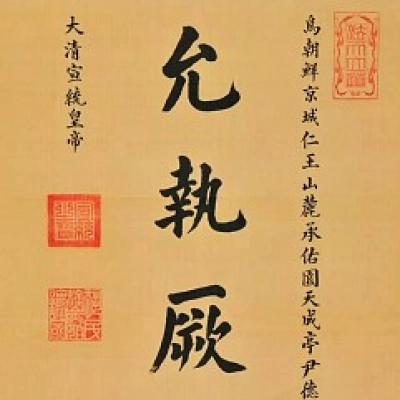 為朝鮮京城仁王山麓承佑園天成亭尹德
允執厥
大清宣統皇帝